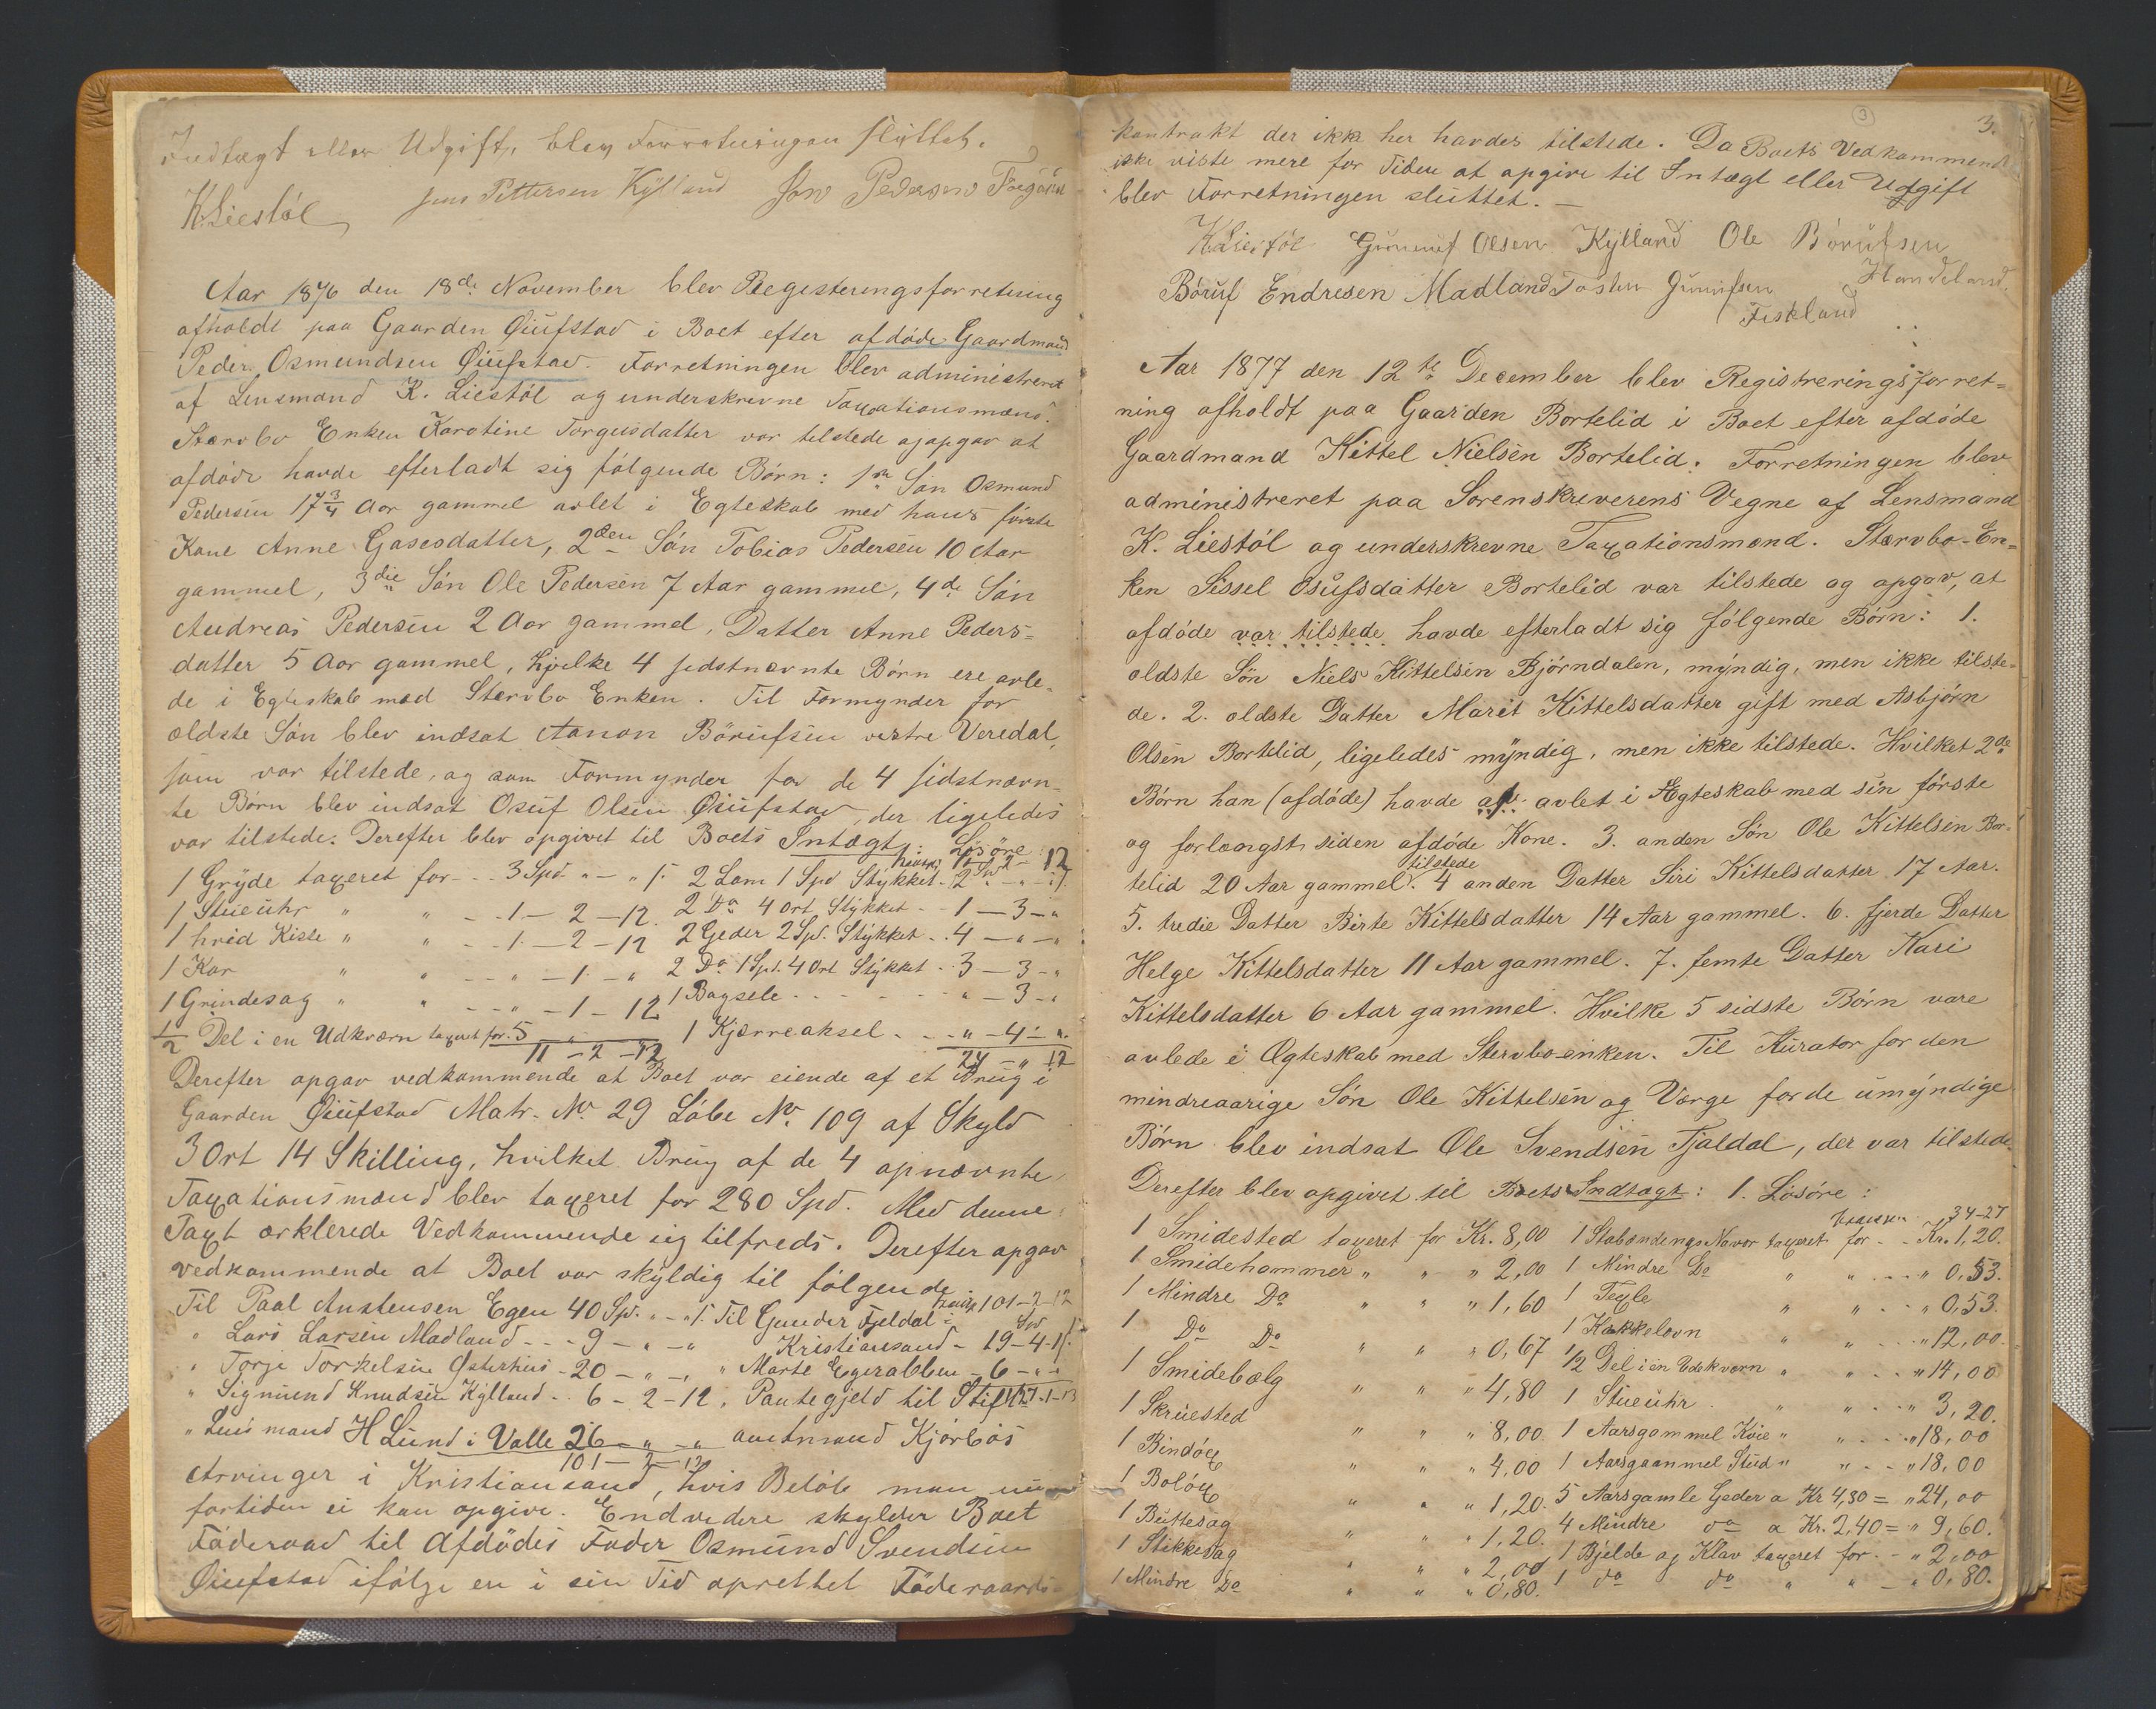 Indtægt eller Udgift, blev Forretningen slüttet.
K. Liestöl Jens Pettersen Kÿlland Jon Pedersen
Aar 1876 den 18de November blev Registeringsforretning
afholdt paa Gaarden Øiüfstad i Boet efter afdöde Gaardmand
Peder Osmundsen Øiüfstad. Forretningen blev administreret
af Lensmand K. Liestöl og underskrevne Taxationsmænd.
Stervbo Enken Karotine Torgusdatter var tilstede og opgav at
afdöde havde efterladt sig fölgende Börn: 1ste Søn Osmund
Pedersen 17 3/4 Aar gammel avlet i Egteskab med hans förste
Kone Anne Gasesdatter, 2den Sön Tobias Pedersen 10 Aar
gammel, 3die Sön Ole Pedersen 7 Aar gammel, 4de Sön
Andreas Pedersen 2 Aar gammel, Datter Anne Peders-
datter 5 Aar gammel, hvilke 4 sidstnævnte Börn ere avle-
de i Egteskab med Stervbo Enken. Til Formynder for
ældste Sön blev indsat Aanon Börüfsen vestre Veredal,
som var tilstede, og som Formynder for de 4 sidstnævn-
te Børn blev indsat Osüf Olsen Øiüfstad, der ligeledes
var tilstede. Derefter blev opgivet til Boets Intægt: Lösöre:
1 Grÿde taxeret for - - 3 Spd. " - " /: 2 Lam 1 Spd Stÿkket - 2 - " - "
1 Stueühr " " - - 1 - 2 - 12 2 Do 4 Ort Stÿkket - - 1 - 3 - "
1 hvid Kiste " " - - 1 - 2 - 12 2 Geder 2 Spd. Stÿkket - - 4 - " - "
1 Kar " " - - " - 1 - " 2 Do 1 Spd. 4 Ort Stÿkket - - 3 - 3 - "
1 Grindesag " " - - " - 1 - 12 1 Bagsele - - - - " - 3 - "
1/2 Del i en Udkværn taxeret for 5 - " - " 1 Kjærreaksel - - " - 4 - "
11 - 2 - 12 24 - " - 12
Derefter opgav vedkommende at Boet var eiende af et Brüg i
Gaarden Øiüfstad Matr. No 29 Löbe No 109 af Skyld
3 Ort 14 Skilling, hvilket Brüg af de 4 opnævnte
Taxationsmænd blev taxeret for 280 Spd. Med denne
Taxt erklerede Vedkommende sig tilfreds. Derefter opgav
vedkommende at Boet var skÿldig til fölgende:
Til Paal Austensen Egen 40 Sp. " - " /: Til Gunder Fjeldal - 101 - 2 - 12
" Lars Larsen Madland - - - 9 - " - " Kristiansand - 19 - 4 - 1/:
" Torje Torkelsen Østerhus - 20 - " - " " Marte Egerabben - 6 - " - "
" Sigmünd Knudsen Kÿlland - - 6 - 2 - 12. Pantegjeld til Stift
" Lensmand H Lund i Valle 26 - " - " amtmand Kjörboes
101 - 2 - 12
Arvinger i Kristiansand, hvis Belöb man nu
fortiden ei kan opgive. Endvidere skylder Boet
Föderaad til Afdödes Fader Osmünd Svendsen
Øiufstad ifölge en i sin Tid oprettet Föderaads-
3.
3
kontrakt der ikke her havdes tilstede. Da Boets Vedkommende
ikke viste mere for Tiden at opgive til Intægt eller Udgift
blev Forretningen slüttet. -
K. Liestöl Gunnuf Olsen Kÿlland Ole Börüfsen
Handeland.
Börüf Endresen Madland Tosten Gunüfsen
Fiskland
Aar 1877 den 12te December blev Registreringsforret-
ning afholdt paa Gaarden Bortelid i Boet efter afdöde
Gaardmand Kittel Nielsen Bortelid. Forretningen blev
administreret paa Sorenskriverens Vegne af Lensmand
K. Liestöl og underskrevne Taxationsmænd. Stervbo-En-
ken Sissel Osüfsdatter Bortelid var tilstede og opgav, at
afdöde var tilstede havde efterladt sig fölgende Börn: 1.
ældste Sön Niels Kittelsen Bjørndalen, mÿndig, men ikke tilste-
de. 2. ældste Datter Marit Kittelsdatter gift med Asbjørn
Olsen Bortelid, ligeledes mÿndig, men ikke tilstede. Hvilket 2de
Børn han (afdöde) havde avlet i Ægteskab med sin förste
og forlængst siden afdöde Kone. 3. anden Sön Ole Kittelsen Bor-
tilstede
telid 20 Aar gammel. 4 anden Datter Siri Kittelsdatter 17 Aar.
5. tredie Datter Birte Kittelsdatter 14 Aar gammel. 6. fjerde Datter
Helge Kittelsdatter 11 Aar gammel. 7. femte Datter Kari
Kittelsdatter 6 Aar gammel. Hvilke 5 sidste Børn vare
avlede i Ægteskab med Stervbo-enken. Til Kürator for den
mindreaarige Sön Ole Kittelsen og Værge for de ümÿndige
Børn blev indsat Ole Svendsen Fjaldal, der var tilstede.
Derefter blev opgivet til Boets Indtægt: 1. Lösöre:
34-27
1 Smidested taxeret for Kr. 8,00 1 Stabændings Naver taxeret for - - Kr. 1,20.
1 Smidehammer " " " 2,00 1 Mindre Do " " - - " 0,53.
1 Mindre Do " " " 1,60 1 Texle " " - - " 0,53.
1 Do Do " " " 0,67 1 Kakkelovn " " - - " 12,00.
1 Smidebælg " " " 4,80 1/2 Del i en Udekværn " " - - " 14,00
1 Skrüested " " " 8,00 1 Stueühr " " - - " 3,20.
1 Bindöx " " " 4,00 1 Aarsgammel Kvie " " - - " 18,00
1 Bolöx " " " 1,20. 1 Aarsgammel Stüd " " - - " 18,00
1 Büttesag " " " 1,20. 5 Aarsgamle Geder a Kr 4,80 = " 24,00
1 Stikksag " " " 2,00 4 Mindre do a Kr. 2,40 = " 9,60.
1 Mindre Do " " " 0,80. 1 Bjelde og Klav taxeret for - - " 2,00
1 do do " " - " 0,80.